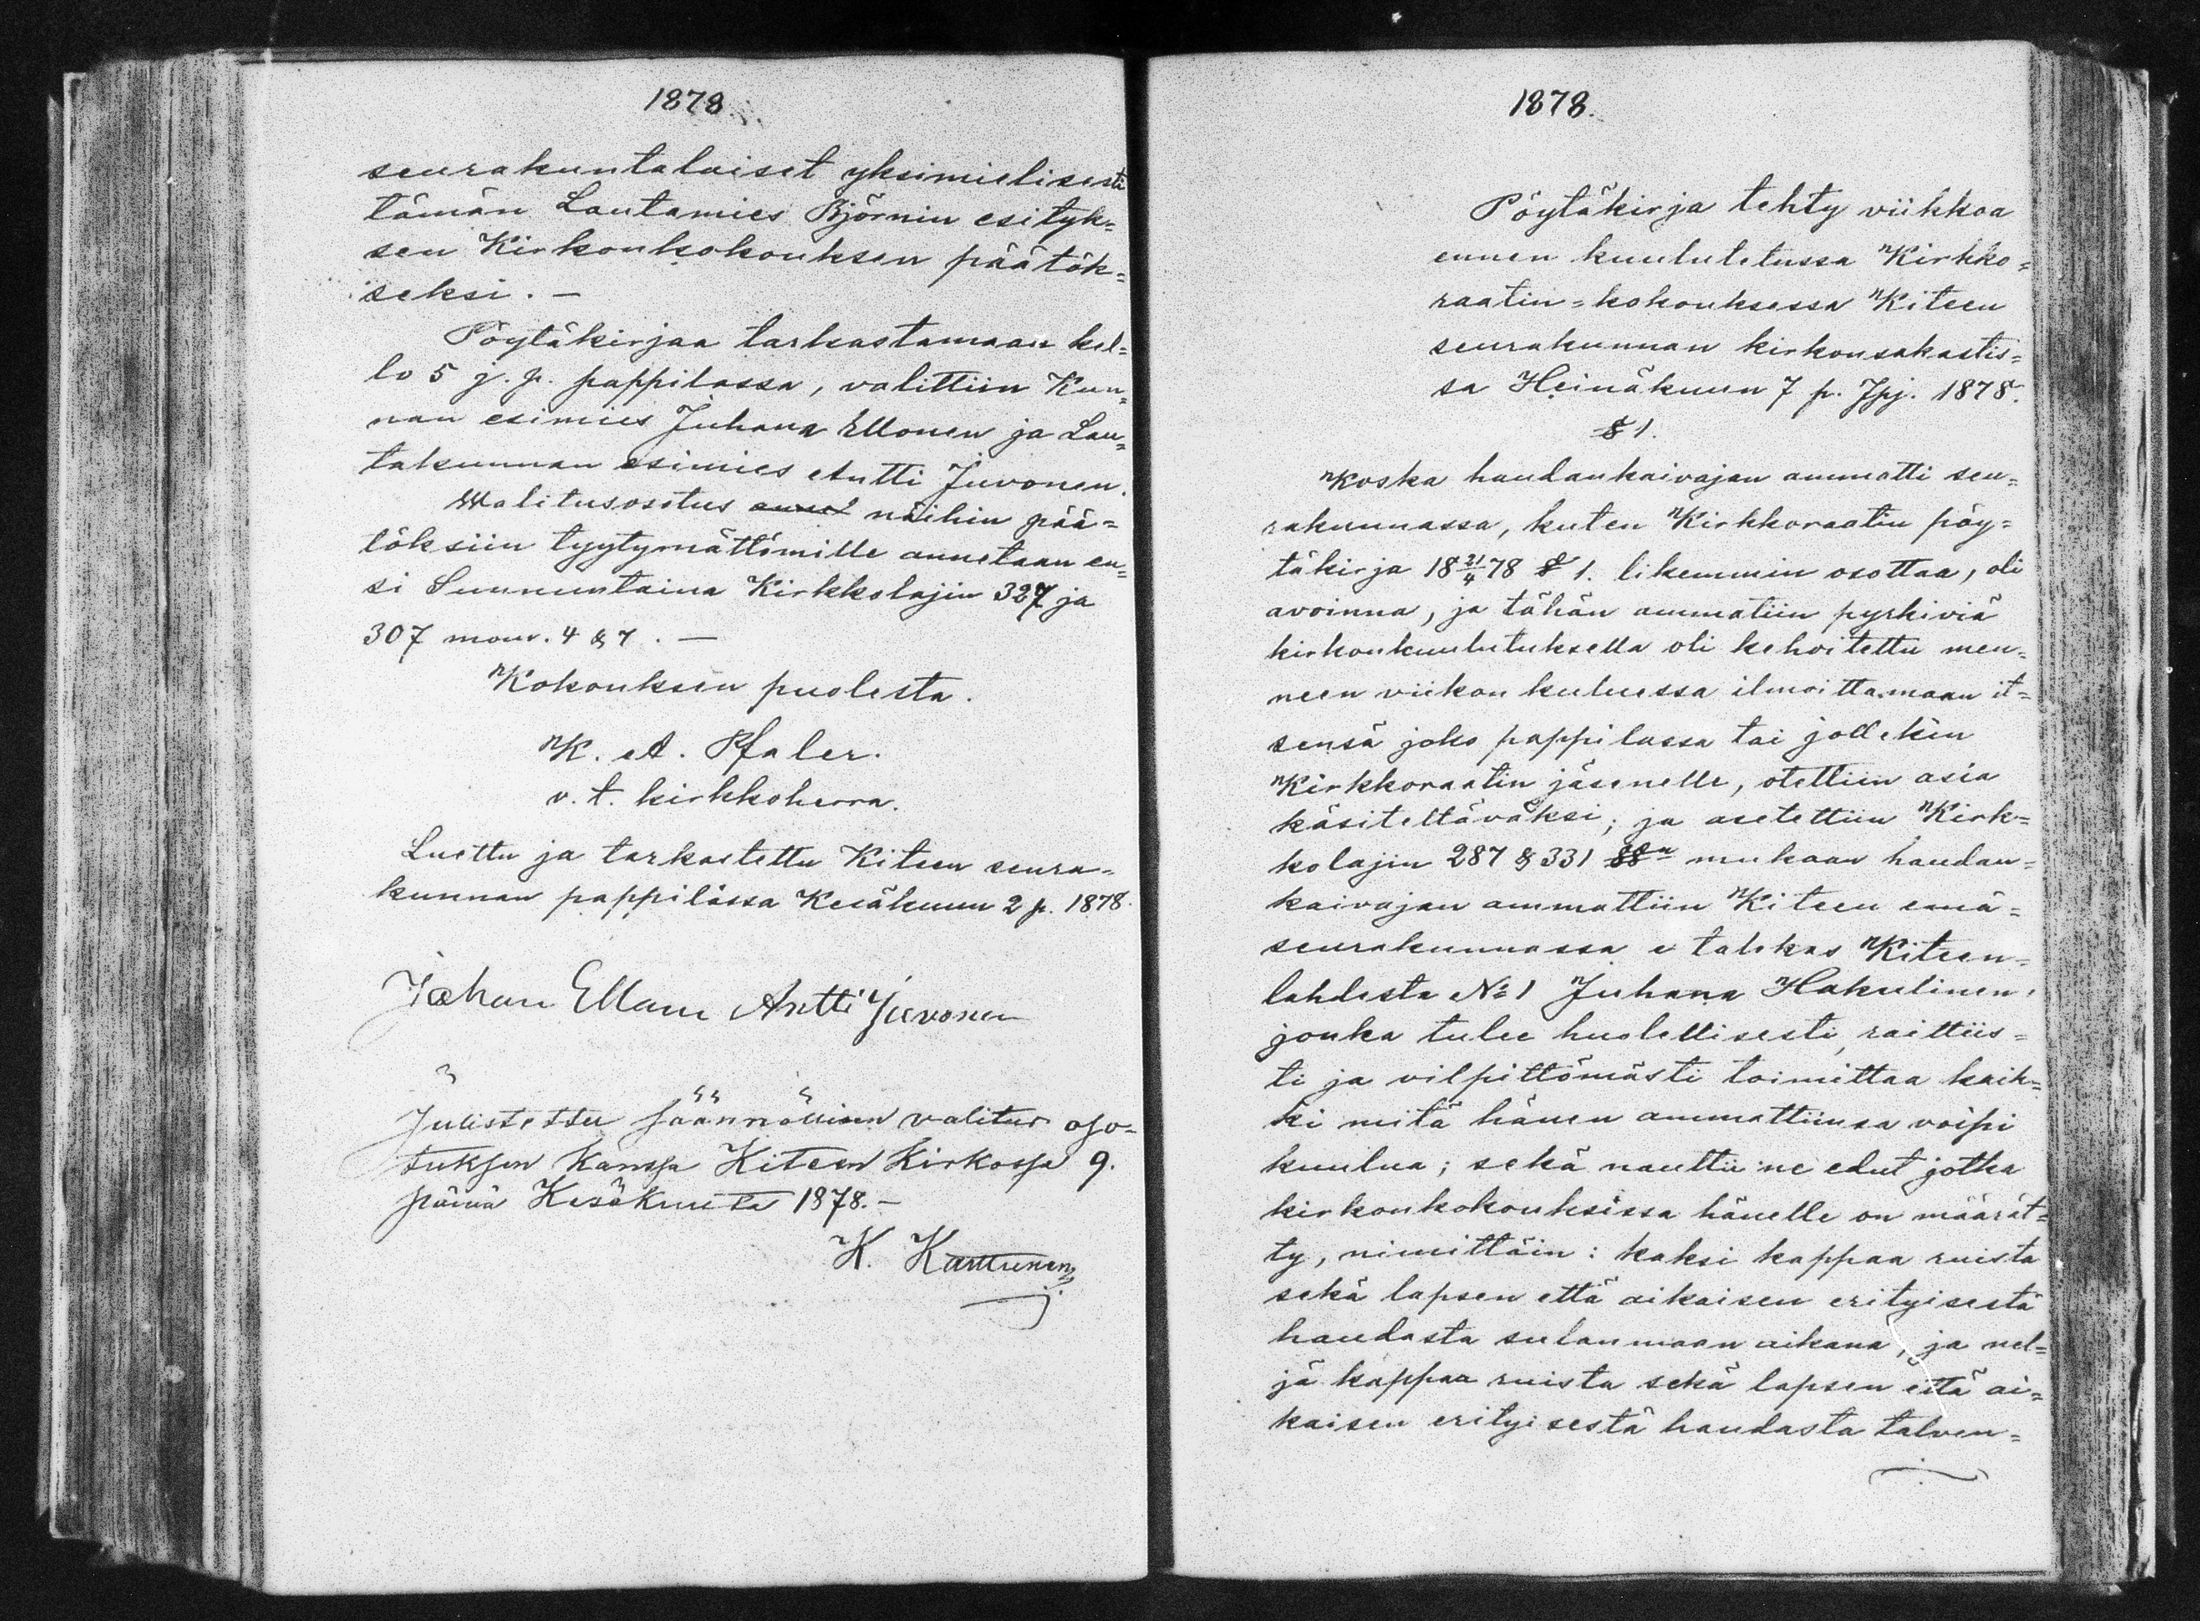 1878.
seurakuntalaiset yksimielisesti
tämän Lautamies Björnin esityk=
sen Kirkonkokouksen päätök=
seksi. —
Pöytäkirjaa tarkastamaan kel=
lo 5 j. p. pappilassa, valittiin Kun=
nan esimies Juhana Ellonen ja Lau=
takunnan esimies Antti Juvonen.
Walitusosotus näihin pää=
töksiin tyytymättömille annetaan en=
si Sunnuntaina Kirkkolajin 327 ja
307 mom. 4 & 7. —
Kokouksen puolesta.
K. A. Pfaler.
v. t. kirkkoherra.
Luettu ja tarkastettu Kiteen seura=
kunnan pappilassa Kesäkuun 2 p. 1878.
Johan Antti Juvonen
Julistettu säännöllisen valitus oso=
tuksen kanssa Kiteen Kirkossa 9.
päivä Kesäkuuta 1878. —
K. Karttunen
1878.
Pöytäkirja tehty viikkoa
ennen kuulutetussa Kirkko=
raatin=kokouksessa Kiteen
seurakunnan kirkonsakastis=
sa Heinäkuun 7 p. Jpj. 1878.
§ 1.
Koska haudankaivajan ammatti seu=
rakunnassa, kuten Kirkkoraatin pöy=
täkirja 18 21/4 78 § 1. likemmin osottaa, oli
avoinna, ja tähän ammatiin pyrkiviä
kirkonkuulutuksella oli kehoitettu men=
neen viikon kuluessa ilmoittamaan it=
sensä joko pappilassa tai jollekin
Kirkkoraatin jäsenelle, otettiin asia
käsiteltäväksi; ja asetettiin Kirk=
kolajin 287 & 331 §§n mukaan haudan=
kaivajan ammattiin Kiteen emä=
seurakunnassa talokas Kiteen=
lahdesta No 1 Juhana Hakulinen,
jonka tulee huolellisesti, raittiis=
ti ja vilpittömästi toimittaa kaik=
ki mitä hänen ammattiinsa voipi
kuulua; sekä nauttii ne edut jotka
kirkonkokouksissa hänelle on määrät=
ty, nimittäin: kaksi kappaa ruista
sekä lapsen että aikaisen erityisestä
haudasta sulanmaan aikana, ja nel=
jä kappaa ruista sekä lapsen että ai=
kaisen erityisestä haudasta talven=